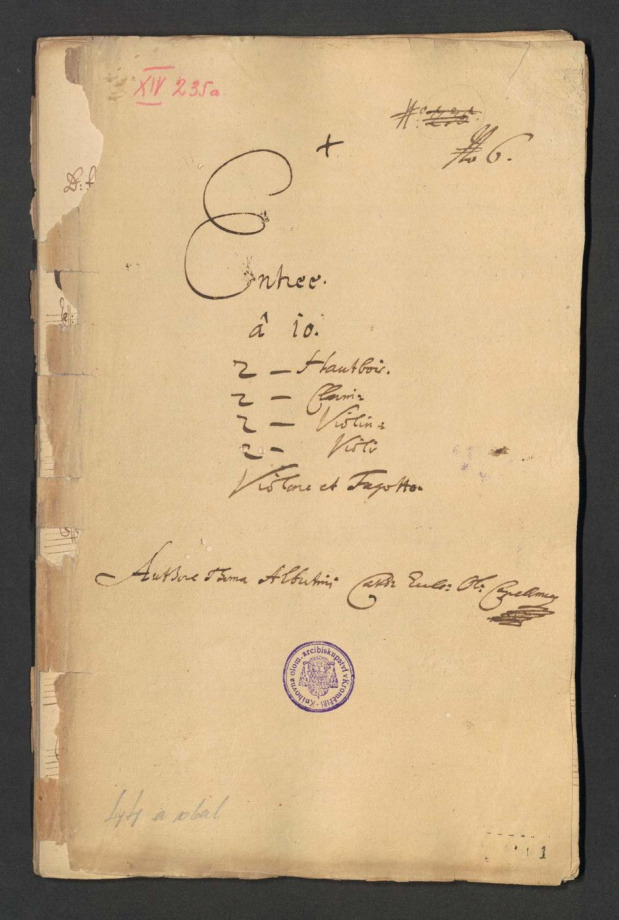 XIV 235a
No 6.
Entree.
â 10.
2 – Hautbois.
2 – Clarin:
2 – Violin:
2 – Viole
Violone et Fagotto.
Authore Thoma Albertini Cath: Eccl: Ol: Capellano
Knihovna olom. arcibiskupství v Kroměříži
1